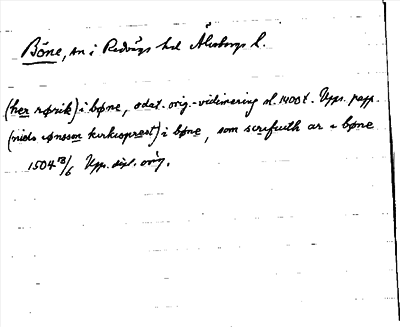 Böne, sn i Redvägs hd Älvsborgs l.
(her rørik) i bøne, odat. orig.-vidimering sl. 1400 t. Upps. papp.
(niels iønsson kirkioprest) i bøne, som scrifuith ær i bøne
1504 18/6 Upps. dipl. orig.